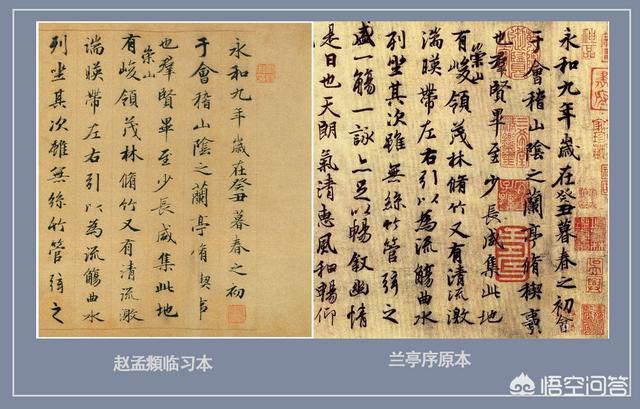 永和九年歲在癸丑暮春之初
于會稽山陰之蘭亭脩禊事
也羣賢畢至少長咸集此地
有崇山峻領茂林脩竹又有清流激
湍暎帶左右引以為流觴曲水
列坐其次雖無絲竹管弦之
永和九年歲在癸丑暮春之初會
于會稽山陰之蘭亭脩禊事
也羣賢畢至少長咸集此地
有崇山峻領茂林脩竹又有清流激
湍暎帶左右引以為流觴曲水
列坐其次雖無絲竹管弦之
盛一觴一詠亦足以暢敘幽情
是日也天朗氣清惠風和暢仰
赵孟頫临习本
兰亭序原本
悟空问答